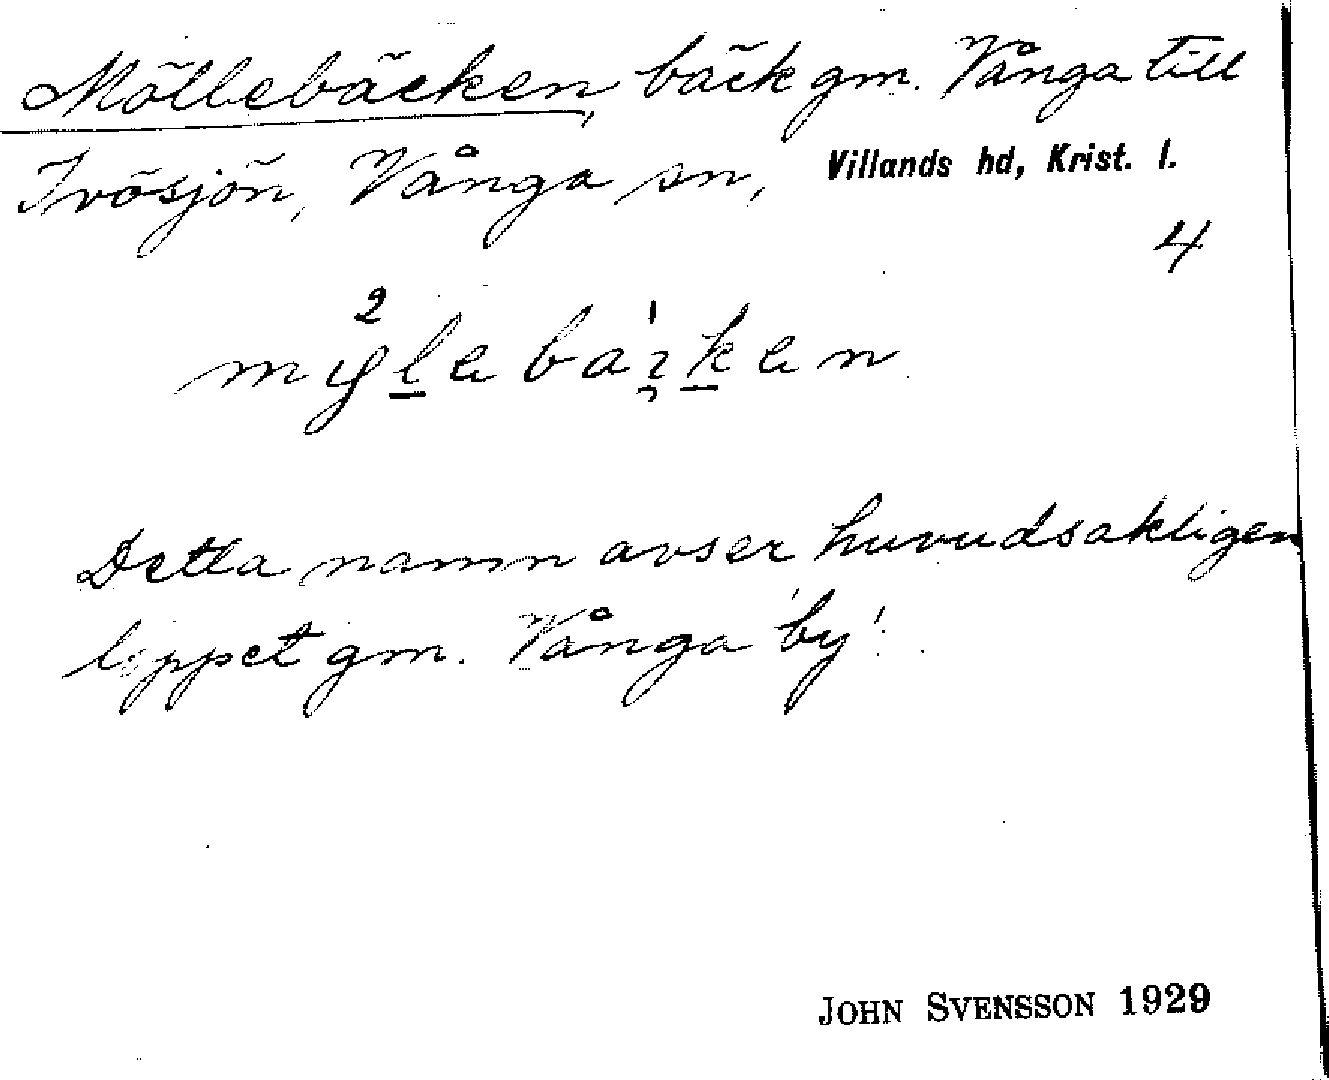 Möllebäcken, bäck gm. Vånga till
Ivösjön, Vånga sn, Villands hd, Krist. l.
4
Detta namn avser huvudsakligen
loppet gm. Vånga 'by'.
JOHN SVENSSON 1929